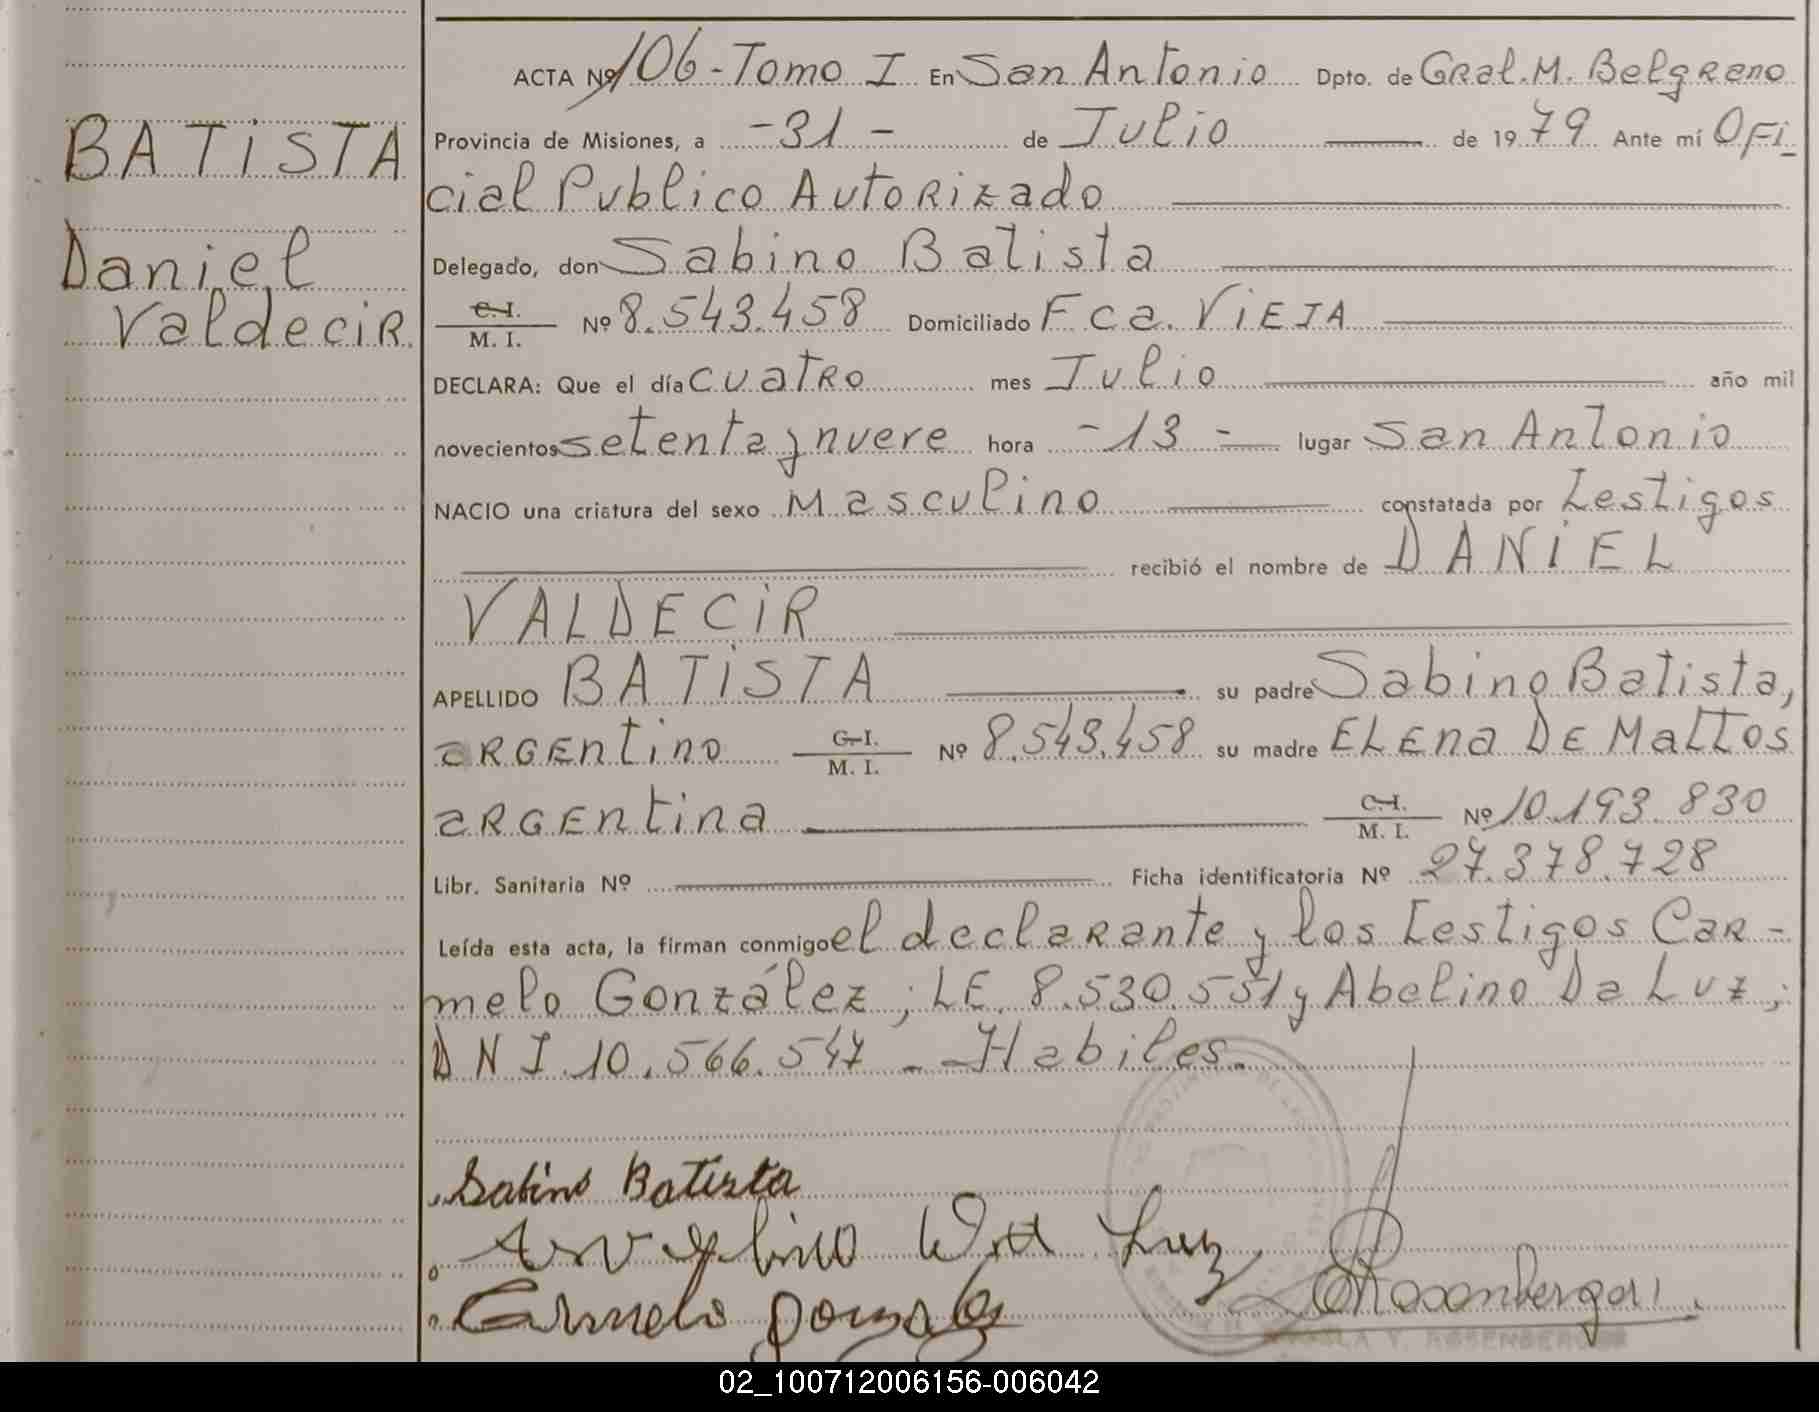 BATISTA
Daniel
Valdecir
ACTA Nº 106 - Tomo I En San Antonio Dpto. de Gral. M. Belgrano
Provincia de Misiones, a - 31 - de Julio de 1979 Ante mí Ofi_
cial Publico Autorizado
Delegado, don Sabino Batista
C. I. / M. I. Nº 8.543.458 Domiciliado Fca. Vieja
DECLARA: Que el día cuatro mes Julio año mil
novecientos setenta y nueve hora - 13 - lugar San Antonio
NACIO una criatura del sexo Masculino constatada por testigos
recibió el nombre de DANIEL
VALDECIR
APELLIDO BATISTA su padre Sabino Batista,
argentino C. I. / M. I. Nº 8.543.458 su madre Elena De Mattos
argentina C. I. / M. I. Nº 10.193.830
Libr. Sanitaria Nº Ficha identificatoria Nº 27.378.728
Leída esta acta, la firman conmigo el declarante y los testigos Car-
melo González; LE. 8.530.551 y Abelino Da Luz;
DNI 10.566.547 - Habiles.
Sabino Batista
Luz
Carmelo
Rosenberger
02_100712006156-006042